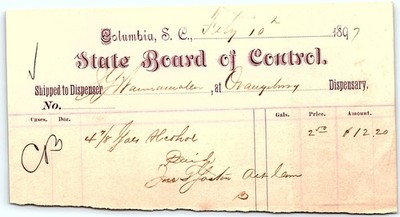 Columbia, S. C., Feby 10th 1897
State Board of Control.
Shipped to Dispenser, at Orangeburg Dispensary.
No.
Cases. Doz. Gals. Price. Amount.
4 7/8 Gals Alcohol 2 50 $12.20
Paid